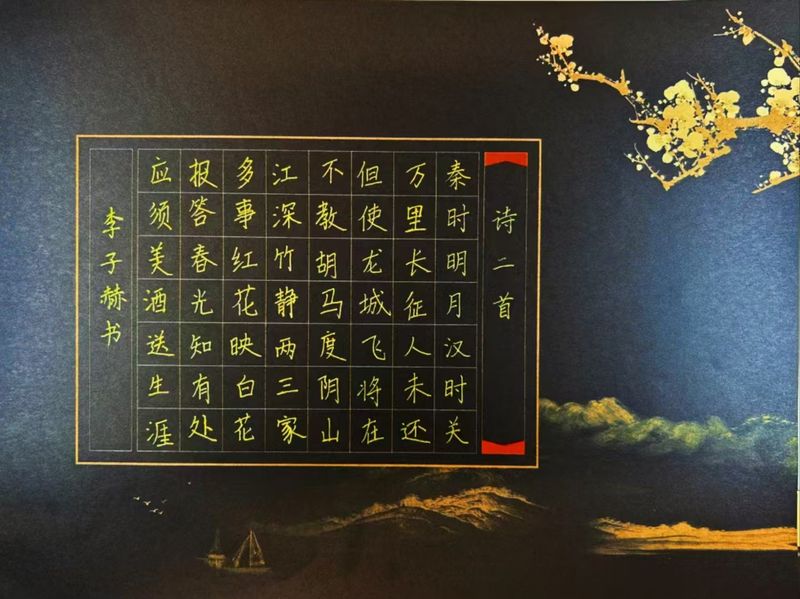 诗二首
秦时明月汉时关
万里长征人未还
但使龙城飞将在
不教胡马度阴山
江深竹静两三家
多事红花映白花
报答春光知有处
应须美酒送生涯
李子赫书